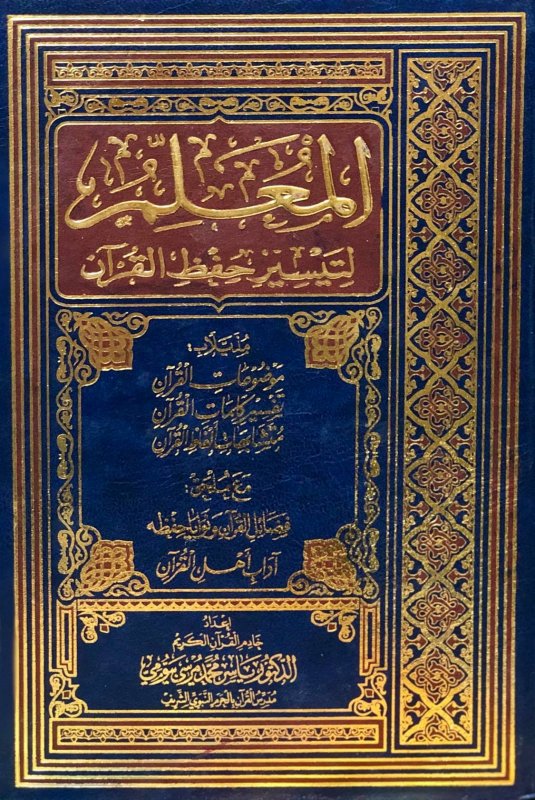 المُعَلِّم
لِتَيْسِيرِ حِفْظِ القُرْآن
مُذَيَّلاً بِ:
مَوْضُوعَاتِ القُرْآن
تَفْسِيرِ كَلِمَاتِ القُرْآن
مُتَشَابِهَاتِ أَلْفَاظِ القُرْآن
مَعَ مُلْحَقِ:
فَضَائِلِ القُرْآنِ وَثَوَابِ حِفْظِه
آدَابِ أَهْلِ القُرْآن
إِعْدَادُ
خَادِمِ القُرْآنِ الكَرِيمِ
الدكتور ياسر محمد مرسي بيومي
مُدَرِّسِ القُرْآنِ بِالحَرَمِ النَّبَوِيِّ الشَّرِيفِ